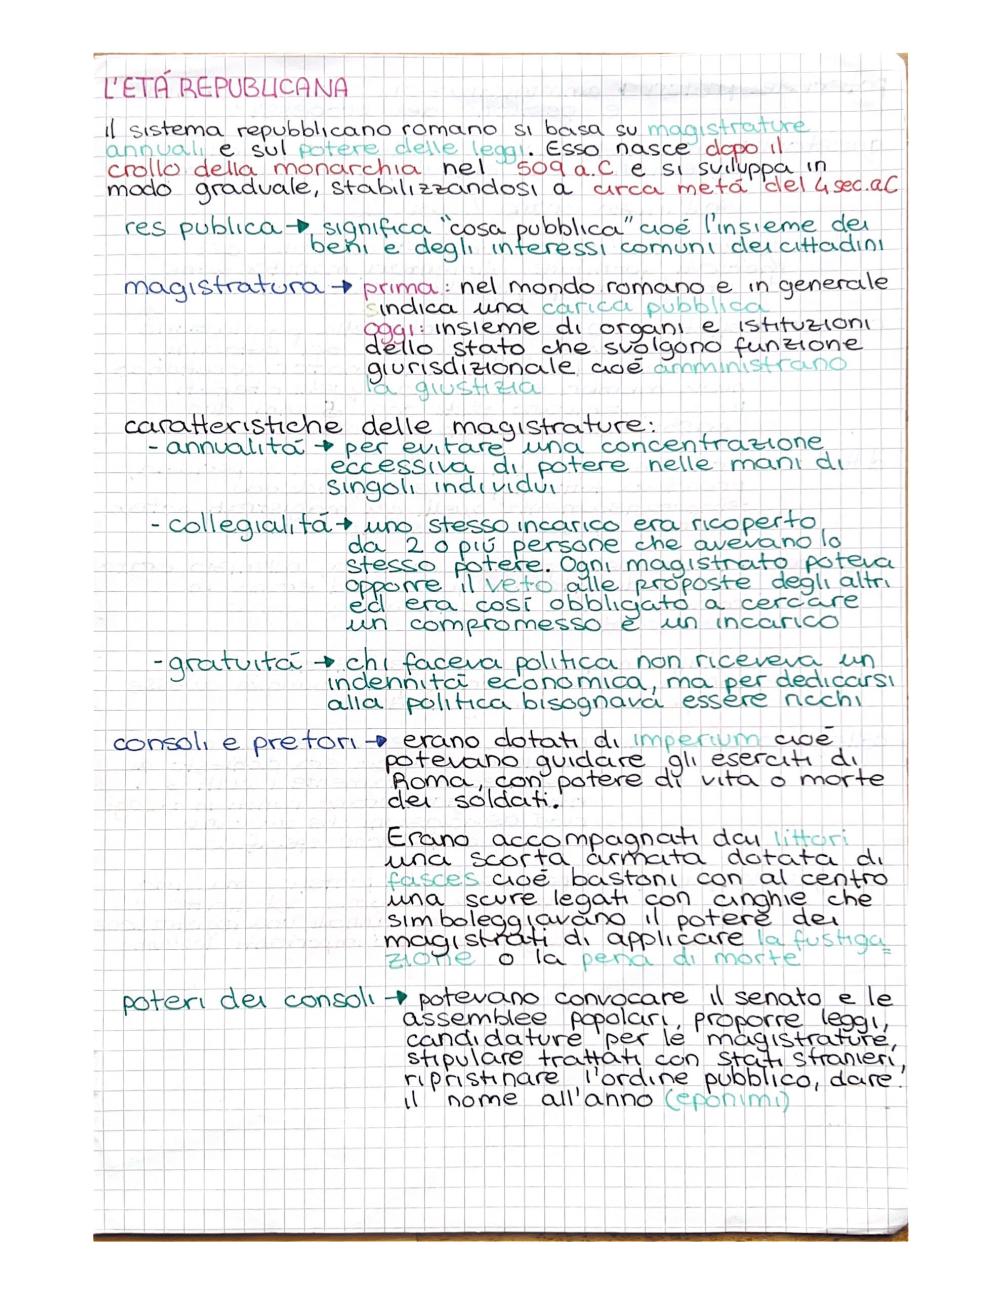 L'ETÁ REPUBLICANA
il sistema repubblicano romano si basa su magistrature
annuali e sul potere delle leggi. Esso nasce dopo il
crollo della monarchia nel 509 a.C e si sviluppa in
modo graduale, stabilizzandosi a circa metá del 4 sec.a.C
res publica → significa "cosa pubblica" cioé l'insieme dei
beni e degli interessi comuni dei cittadini
magistratura → prima: nel mondo romano e in generale
indica una carica pubblica
oggi: insieme di organi e istituzioni
dello stato che svolgono funzione
giurisdizionale cioé amministrano
la giustizia
caratteristiche delle magistrature:
- annualitá → per evitare una concentrazione
eccessiva di potere nelle mani di
singoli individui
- collegialitá → uno stesso incarico era ricoperto
da 2 o piú persone che avevano lo
stesso potere. Ogni magistrato poteva
opporre il veto alle proposte degli altri
ed era cosí obbligato a cercare
un compromesso e un incarico
- gratuitá → chi faceva politica non riceveva un
indennitá economica, ma per dedicarsi
alla politica bisognava essere ricchi
consoli e pretori → erano dotati di imperium cioé
potevano guidare gli eserciti di
Roma, con potere di vita o morte
dei soldati.
Erano accompagnati dai littori
una scorta armata dotata di
fasces cioé bastoni con al centro
una scure legati con cinghie che
simboleggiavano il potere dei
magistrati di applicare la fustiga=
zione o la pena di morte
poteri dei consoli → potevano convocare il senato e le
assemblee popolari, proporre leggi,
candidature per le magistrature,
stipulare trattati con stati stranieri,
ripristinare l'ordine pubblico, dare
il nome all'anno (eponimi)